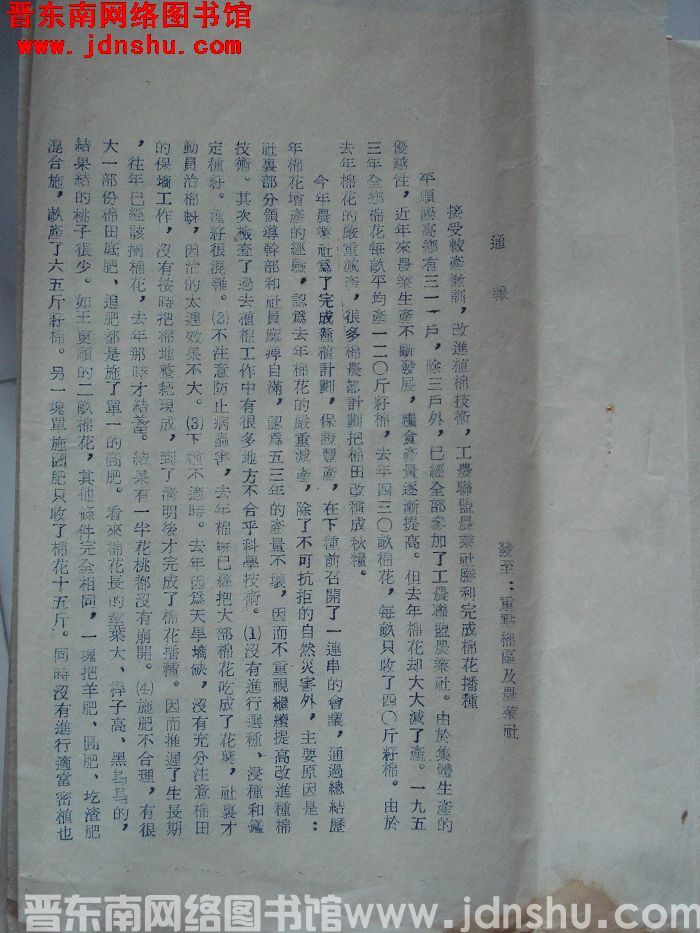 晋东南网络图书馆
www.jdnshu.com
通報
發至：重點棉區及農業社
接受較產教訓，改進植棉技術，工農聯盟農業社勝利完成棉花播種
平順陽高鄉有三一一戶，除三戶外，已經全部參加了工農聯盟農業社。由於集體生產的
優越性，近年來農業生產不斷發展，糧食產量逐漸提高。但去年棉花却大大減了產。一九五
三年全鄉棉花每畝平均產一二〇斤籽棉，去年四三〇畝棉花，每畝只收了四〇斤籽棉。由於
去年棉花的嚴重減產，很多棉農都計劃把棉田改種成秋糧。
今年農業社爲了完成種植計劃，保證豐產，在下種前召開了一連串的會議，通過總結歷
年棉花增產的經驗，認爲去年棉花的嚴重減產，除了不可抗拒的自然災害外，主要原因是：
社裏部分領導幹部和社員麻痺自滿，認爲五三年的產量不壞，因而不重視繼續提高改進種棉
技術。其次檢查了過去植棉工作中有很多地方不合乎科學技術。⑴沒有進行選種、浸種和鑑
定種籽。舊籽很混雜。⑵不注意防止病蟲害，去年棉蚜已經把大部棉花吃成了花葉，社裏才
動員治棉蚜，因治的太遲效果不大。⑶下種不適時。去年因爲天旱墒缺，沒有充分注意棉田
的保墒工作，沒有按時把棉地整理現成，到了清明後才完成了棉花播種。因而推遲了生長期
，往年已經該摘棉花，去年那時才結蕾。結果有一半花桃都沒有崩開。⑷施肥不合理，有很
大一部份棉田底肥、追肥都是施了單一的圈肥。看來棉花長的葉大、桿子高、黑烏烏的，
結果結的桃子很少。如王更順的二畝棉花，其他條件完全相同，一塊把羊肥、圈肥、圪渣肥
混合施，畝產了六五斤籽棉。另一塊單施圈肥只收了棉花十五斤。同時沒有進行適當密植也
晋东南网络图书馆 www.jdnshu.com